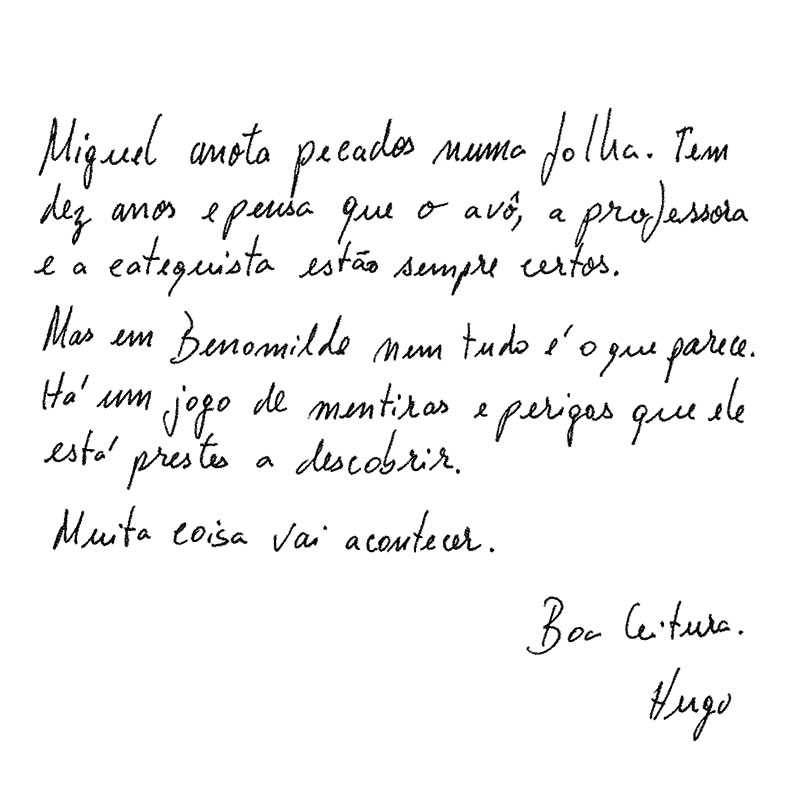 Miguel anota pecados numa folha. Tem
dez anos e pensa que o avô, a professora
e a catequista estão sempre certos.
Mas em Benomilde nem tudo é o que parece.
Há um jogo de mentiras e perigos que ele
está prestes a descobrir.
Muita coisa vai acontecer.
Boa leitura.
Hugo